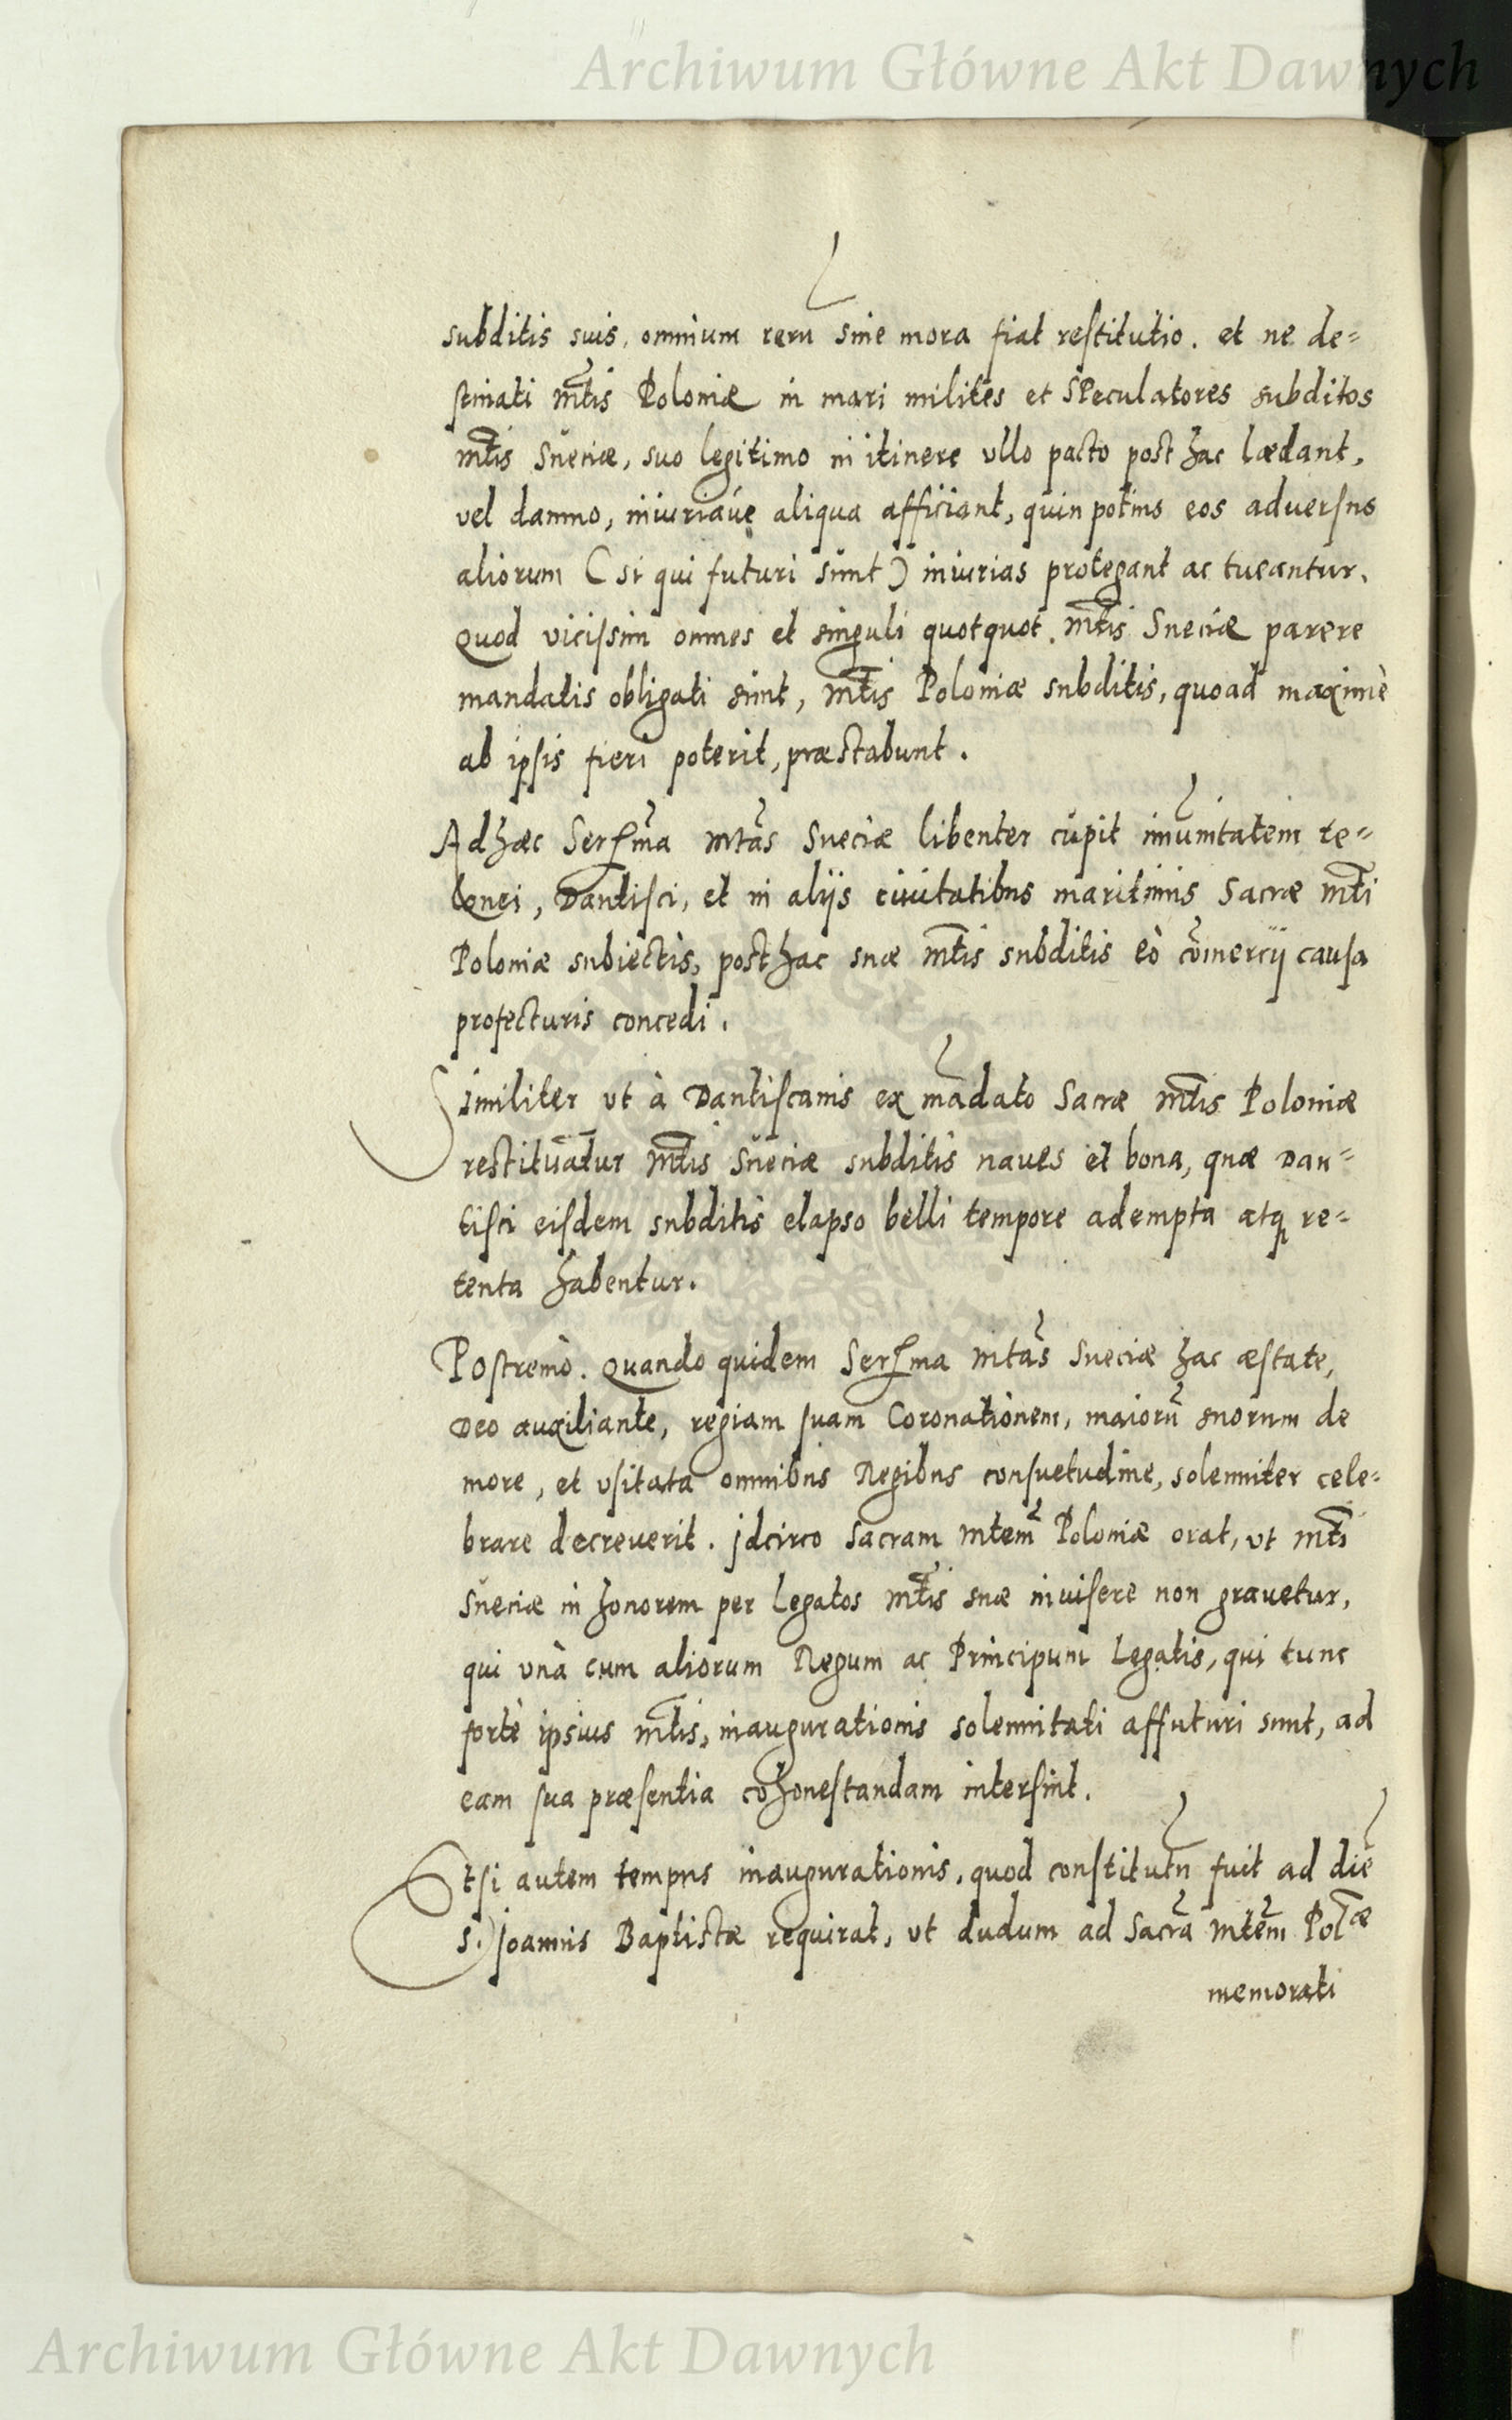 Archiwum Główne Akt Dawnych
subditis suis, omnium rerū sine mora fiat restitutio. et ne de=
stinati Mt̄is Poloniæ in mari milites et Speculatores subditos
Mt̄is Sueciæ, suo legitimo in itinere vllo pacto posthac lædant,
vel damno, iniuriaue aliqua afficiant, quin potius eos aduersus
aliorum (si qui futuri sunt) iniurias protegant ac tueantur.
Quod vicissim omnes et singuli quotquot. Mt̄is Sueciæ parere
mandatis obligati sunt, Mt̄is Poloniæ subditis, quoad maximè
ab ipsis fieri poterit, præstabunt.
Ad hæc Serma Mtās Sueciæ libenter cupit imunitatem te=
lonei, Dantisci, et in alijs ciuitatibus maritimis Sacræ Mt̄i
Poloniæ subiectis, posthac suæ Mt̄is subditis eò cōmercij causa
profecturis concedi.
Similiter vt à Dantiscanis ex mādato Sacræ Mt̄is Poloniæ
restituātur Mt̄is Sueciæ subditis naues et bona, quæ Dan=
tisci eisdem subditis elapso belli tempore adempta atq re=
tenta habentur.
Postremò. Quando quidem Serma Mtās Sueciæ hac æstate,
Deo auxiliante, regiam suam Coronationem, maiorū suorum de
more, et vsitata omnibus Regibus consuetudine, solenniter cele=
brare decreuerit. Jdcirco Sacram Mtem Poloniæ orat, vt Mt̄i
Sueciæ in honorem per Legatos Mt̄is suæ inuisere non grauetur,
qui vnà cum aliorum Regum ac Principum Legatis, qui tunc
fortè ipsius Mt̄is, inaugurationis solennitati affuturi sunt, ad
eam sua præsentia cohonestandam intersint.
Etsi autem tempus inaugurationis, quod constitutū fuit ad diē
S. Joannis Baptistæ requirat, vt dudum ad Sacrā Mtēm Polæ
memorati
Archiwum Główne Akt Dawnych